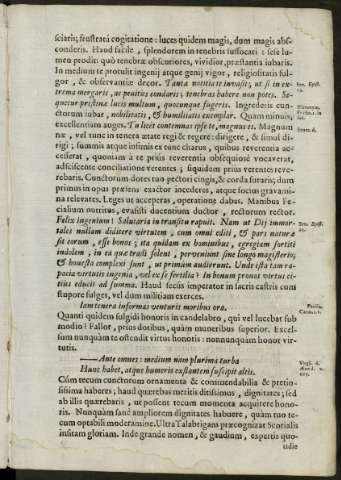 sciaris; frustrata cogitatione: luces quidem magis, dum magis abs-
conderis. Haud facile, splendorem in tenebris suffocari: sese lu-
men prodit: quò tenebræ obscuriores, vividior, præstantia iubaris.
In medium te protulit ingenij atque genij vigor, religiositatis ful-
gor, & observantiæ decor. Tanta nobilitate invasit; ut si in ex-
trema mergaris, ut penitus condaris; tenebras habere non potes. Se-
quetur pristinæ lucis multum, quocunque fugeris. Ingrederis cun-
ctorum iubar, nobilitatis, & humilitatis exemplar. Quam minuis,
excellentiam auges. Tu licet contemnas ipse te, magnus es. Magnum
næ, vel tunc in tenera ætate regi & regere: dirigere, & simul di-
rigi; summis atque infimis ex eunc charus, quibus reverentia ac-
cesserat, quoniam à te priùs reverentia obsequiosè vocaverat,
adsciscense conciliationе veterites; siquidem prius verentes reve-
rebaris. Cunctorum dotes tuo pectori cingis, & corda sistaris; dum
primus in opus præiens exactor incederes, atque socius gravami-
na relevates. Leges ut acceperas, operationę dabus. Manibus Fe-
cialium nutritus, evasisti ducentium ductor, rectorum rector.
Felix ingenium! Salutaria in transitu rapuit. Nam ut Dij immor-
tales nullam didicere virtutem, cum omni editi, & pars naturæ
sit eorum, esse bonos; ita quidam ex hominibus, egregiam sortiti
indolem, in ea quæ tradi solent, perveniunt sine longo magisterio;
& honesta complexi sunt, ut primùm audierunt. Unde ista tam ra-
pacia virtutis ingenia, vel ex se fertilia? In bonum pronos virtus ci-
tius educit ad summa. Haud secus imperator in sacris castris cum
stupore fulges, vel dum militiam exerces.
Iam tenera informas venturis moribus ora.
Quanti quidem fulgidi honoris in candelabro, qui vel lucebat sub
modio? Fallor, prius dotibus, quàm muneribus superior. Excel-
sum nunquàm te ostendit virtus honoris: nonnunquàm honor vir-
tutis.
—Ante omnes: medium nam plurima turba
Hunc habet, atque humeris exstantem suspicit altis.
Cùm tecum cunctorum ornamenta & commendabilia & pretio-
sissima haberes; haud quærebas meritis ditissimus, dignitates; sed
ab illis quærebaris, ut possent tecum momenta acquirere hono-
ris. Nunquàm sanè ampliorem dignitates habuere, quàm tuo te-
cum optabili moderamine. Ultra Talabrigam præcognizat Scorialis
insitam gloriam. Inde grande nomen, & gaudium, expertis quo-
tidie
Sen. Epist.
Seneca.
Sen. Epist.
Virgil. 6.
Æneid.